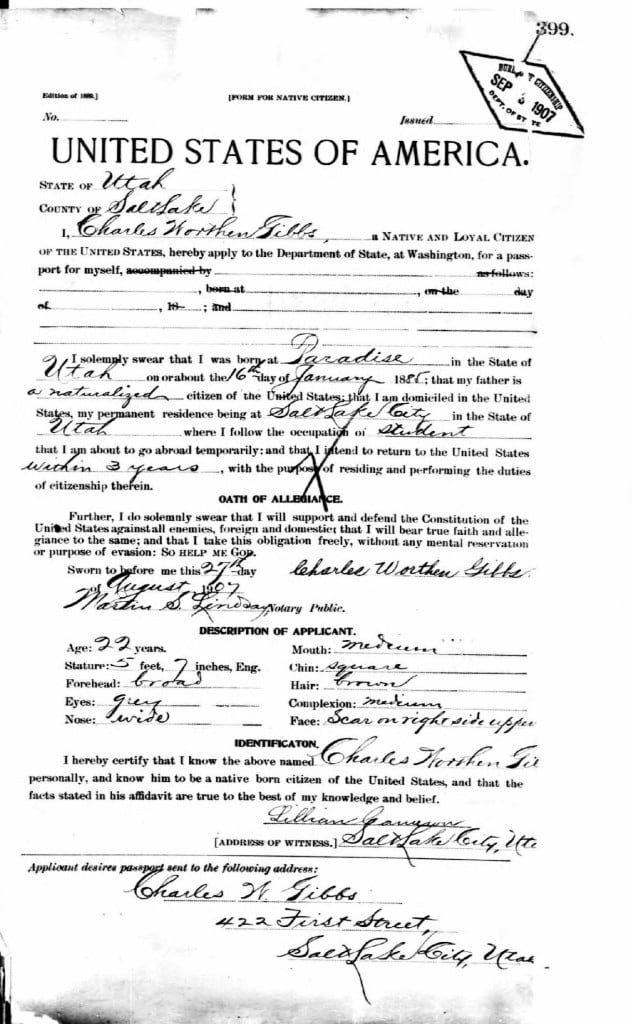 399.
BUREAU OF CITIZENSHIP
SEP 3 1907
DEPT. OF STATE
Edition of 1889.]
[FORM FOR NATIVE CITIZEN.]
No.
Issued
UNITED STATES OF AMERICA.
STATE OF Utah
COUNTY OF Salt Lake
I, Charles Worthen Gibbs, a NATIVE AND LOYAL CITIZEN
OF THE UNITED STATES, hereby apply to the Department of State, at Washington, for a pass-
port for myself, accompanied by as follows:
, born at , on the day
of , 18 ; and
I solemnly swear that I was born at Paradise in the State of
Utah on or about the 16th day of January 1885; that my father is
a naturalized citizen of the United States; that I am domiciled in the United
States, my permanent residence being at Salt Lake City in the State of
Utah where I follow the occupation of student
that I am about to go abroad temporarily: and that I intend to return to the United States
within 3 years, with the purpose of residing and performing the duties
of citizenship therein.
OATH OF ALLEGIANCE.
Further, I do solemnly swear that I will support and defend the Constitution of the
United States against all enemies, foreign and domestic; that I will bear true faith and alle-
giance to the same; and that I take this obligation freely, without any mental reservation
or purpose of evasion: SO HELP ME GOD.
Sworn to before me this 27th day Charles Worthen Gibbs.
of August, 1907
Martin S. Lindsay Notary Public.
DESCRIPTION OF APPLICANT.
Age: 22 years. Mouth: medium
Stature: 5 feet, 7 inches, Eng. Chin: square
Forehead: broad Hair: brown
Eyes: grey Complexion: medium
Nose: wide Face: Scar on right side upper
IDENTIFICATON.
I hereby certify that I know the above named Charles Worthen Gi
personally, and know him to be a native born citizen of the United States, and that the
facts stated in his affidavit are true to the best of my knowledge and belief.
Lillian
[ADDRESS OF WITNESS.] Salt Lake City, Uta
Applicant desires passport sent to the following address:
Charles W. Gibbs
422 First Street,
Salt Lake City, Utah.